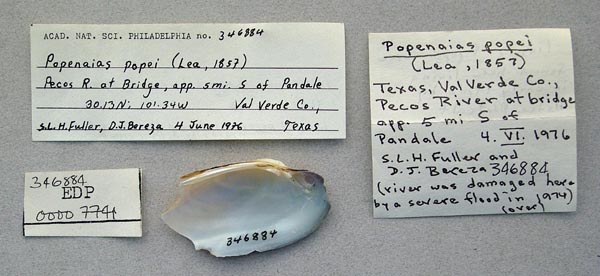 ACAD. NAT. SCI. PHILADELPHIA no. 346884
Popenaias popei (Lea, 1857)
Pecos R. at Bridge, app. 5mi. S of Pandale
30.13N; 101.34W Val Verde Co.,
S.L.H. Fuller, D.J. Bereza 4 June 1976 Texas
Popenaias popei
(Lea, 1857)
Texas, Val Verde Co.,
Pecos River at bridge
app. 5 mi S of
Pandale 4. VI. 1976
S.L.H. Fuller and
D.J. Bereza 346884
(river was damaged here
by a severe flood in 1974)
(over)
346884
EDP
0000 7741
346884